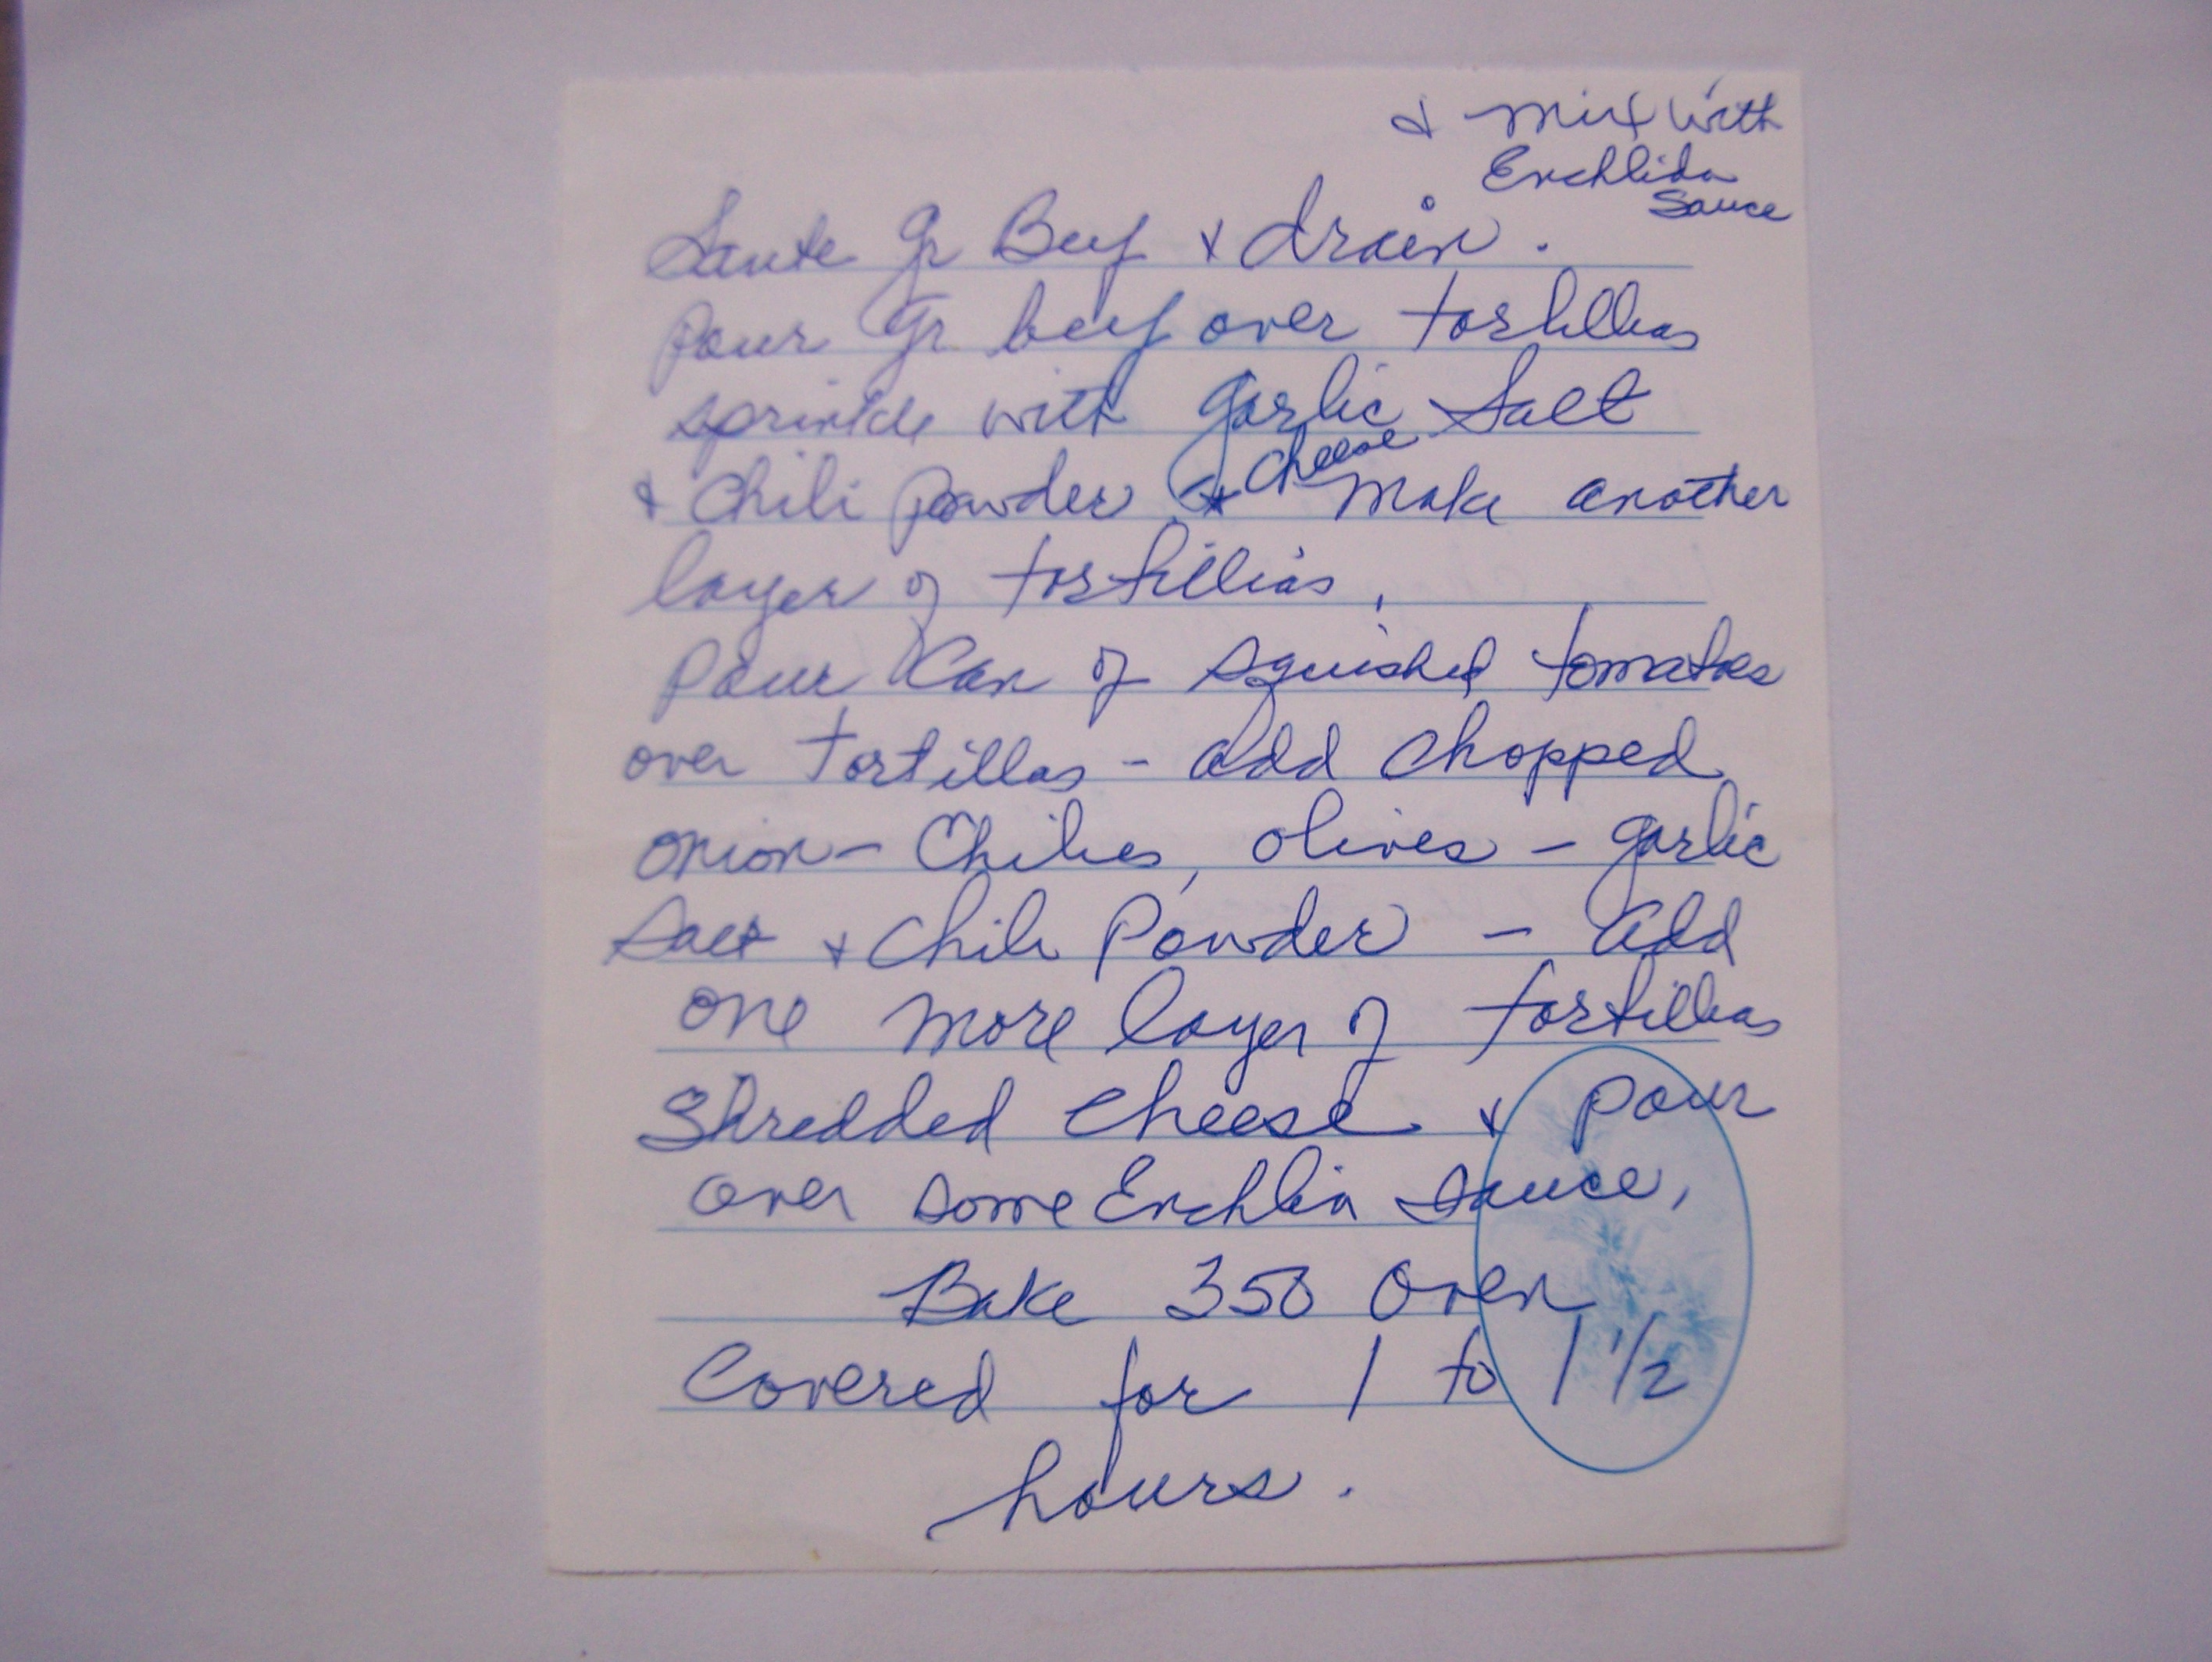 & Mix with
Enchlida
Sauce
Saute Gr Beef & drain.
Pour Gr beef over tortillias
sprinkle with garlic Salt
& Chili Powder & cheese Make another
layer of tortillias.
Pour Can of squished tomatoes
over Tortillas - add chopped
onion - Chilies, olives - garlic
Salt & Chili Powder - Add
one more layer of tortillias
Shredded Cheese & pour
over some Enchlia sauce,
Bake 350 Oven
Covered for 1 to 1 1/2
hours.